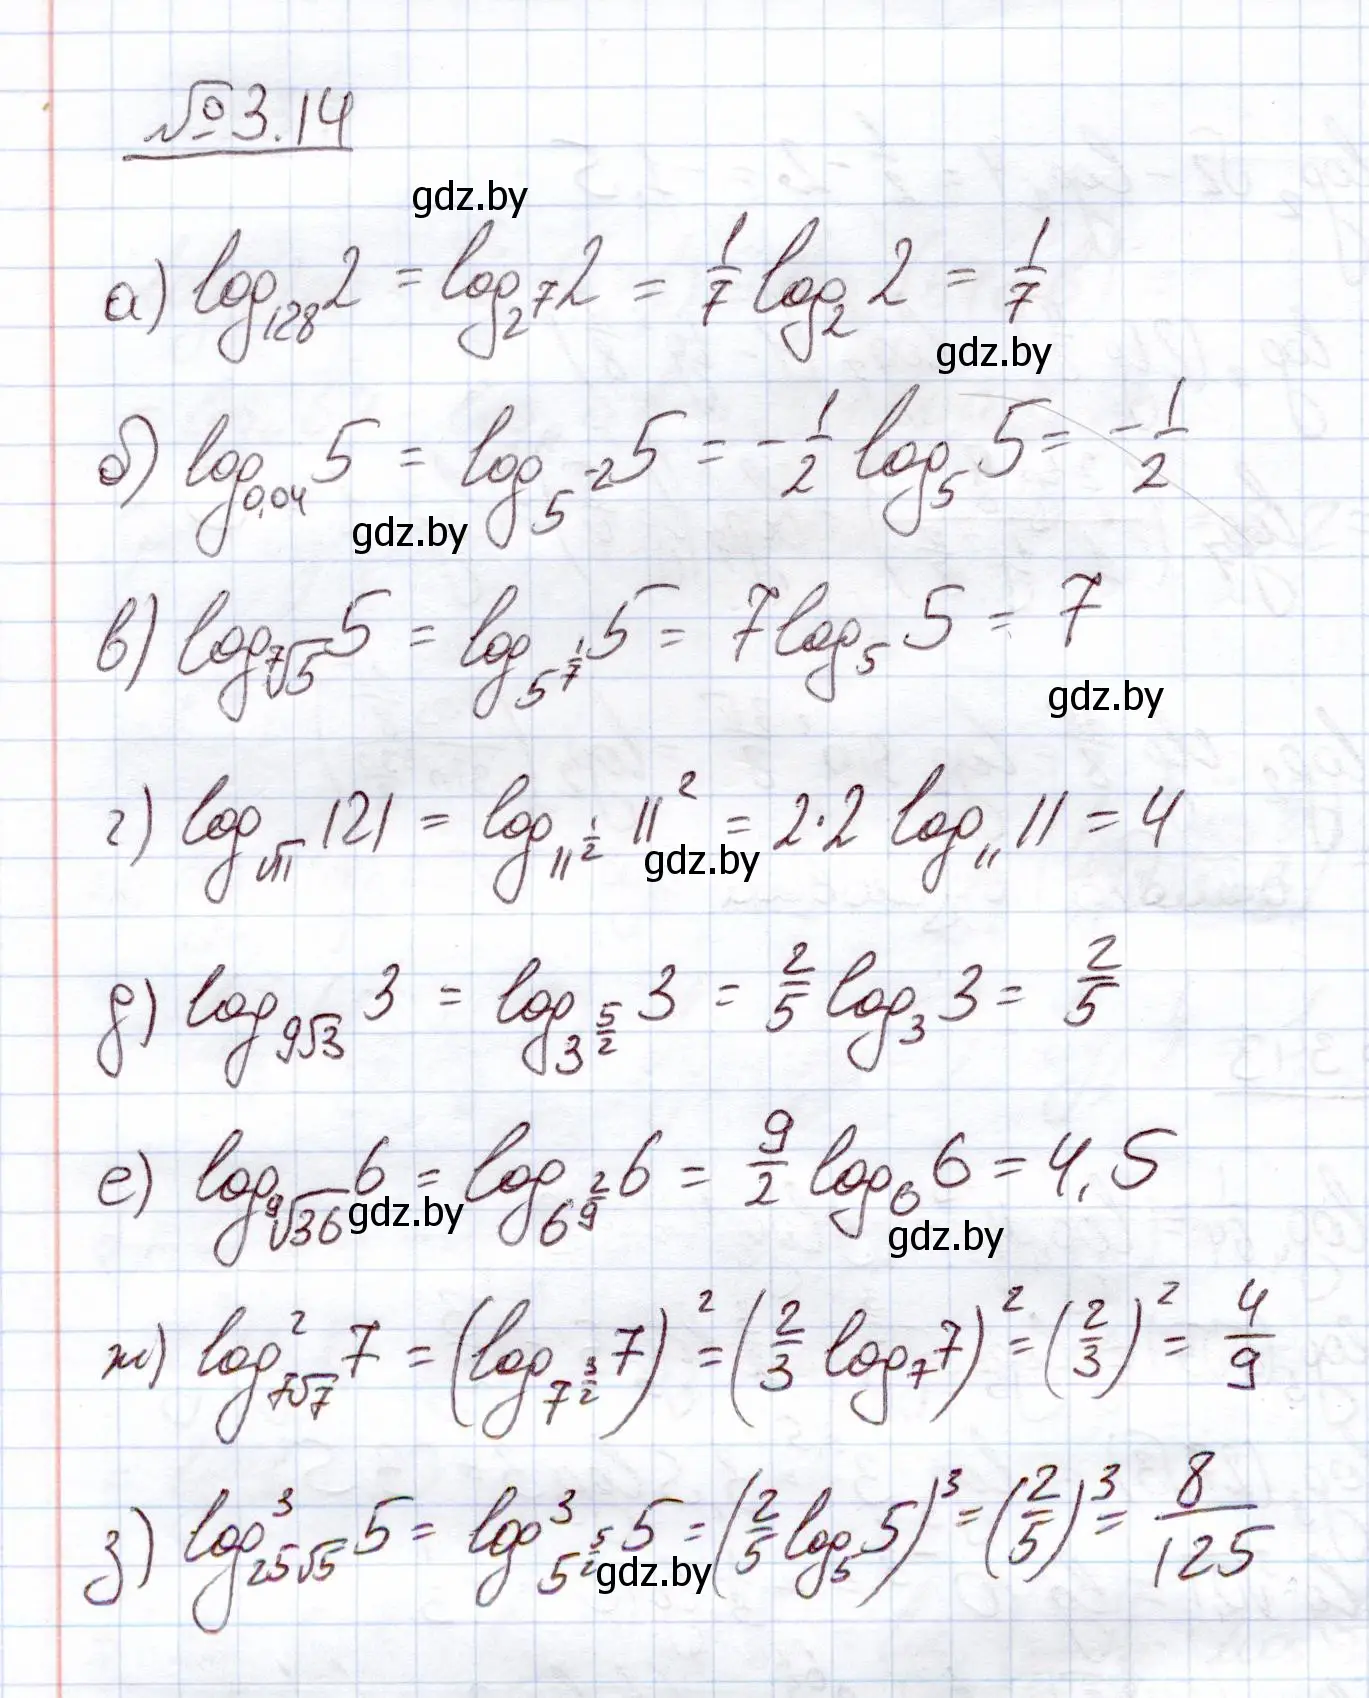 №3.14
gdz.by
а) log₁₂₈ 2 = log_{2^7} 2 = 1/7 log₂ 2 = 1/7
gdz.by
б) log_{0,04} 5 = log_{5^{-2}} 5 = -1/2 log₅ 5 = -1/2
gdz.by
в) log_{⁷√5} 5 = log_{5^{1/7}} 5 = 7 log₅ 5 = 7
gdz.by
г) log_{√11} 121 = log_{11^{1/2}} 11² = 2·2 log₁₁ 11 = 4
gdz.by
д) log_{9√3} 3 = log_{3^{5/2}} 3 = 2/5 log₃ 3 = 2/5
е) log_{⁹√36} 6 = log_{6^{2/9}} 6 = 9/2 log₆ 6 = 4,5
gdz.by gdz.by
ж) log²_{7√7} 7 = (log_{7^{3/2}} 7)² = (2/3 log₇ 7)² = (2/3)² = 4/9
з) log³_{25√5} 5 = log³_{5^{5/2}} 5 = (2/5 log₅ 5)³ = (2/5)³ = 8/125
gdz.by